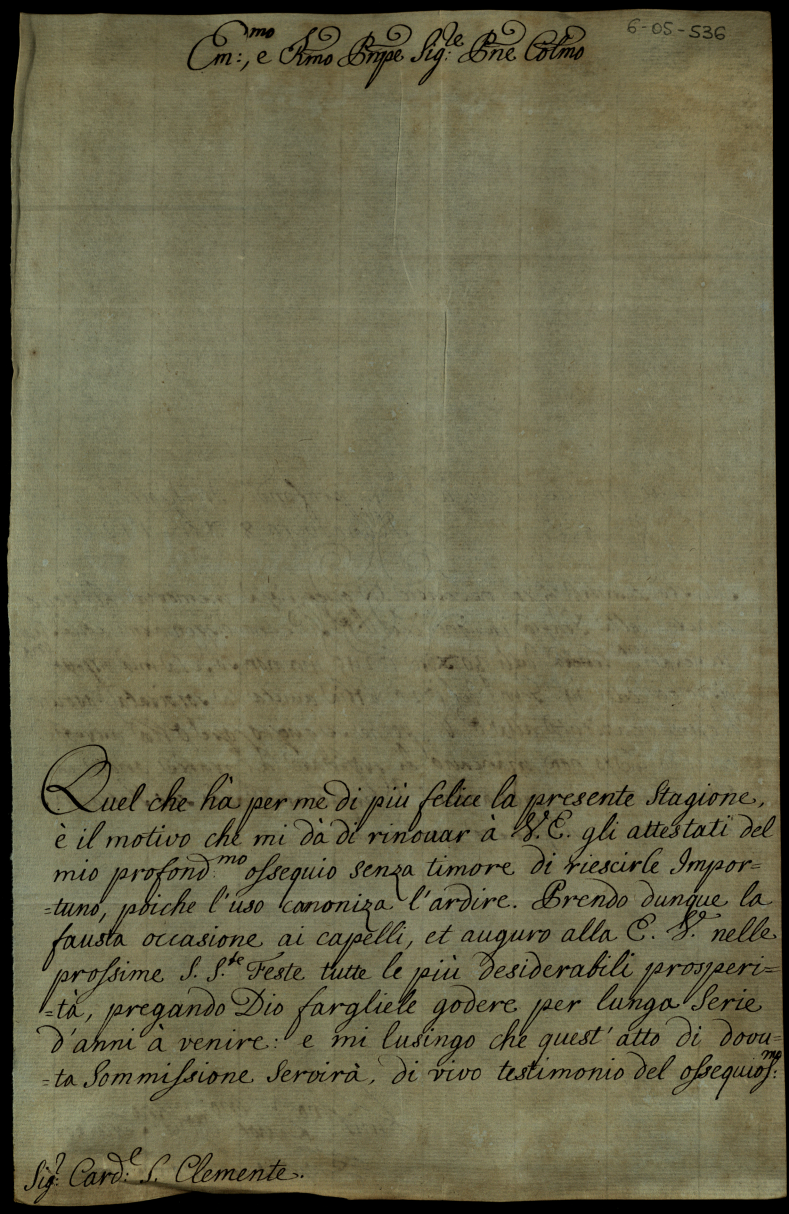 6-05-536
Em:mo, e Rmo Pnpe Sig:re Pne Colmo
Quel che hà per me di più felice la presente Stagione,
è il motivo che mi dà di rinouar à V. E. gli attestati del
mio profond:mo ossequio senza timore di riescirle Impor=
=tuno, poiche l'uso canoniza l'ardire. Prendo dunque la
fausta occasione ai capelli, et auguro alla E. V. nelle
prossime S. S.te Feste tutte le più desiderabili prosperi=
=tà, pregando Dio fargliele godere per lunga Serie
d'anni à venire: e mi lusingo che quest' atto di dovu=
=ta Sommissione Servirà, di vivo testimonio del ossequios:mo
Sig:r Card:e S. Clemente.